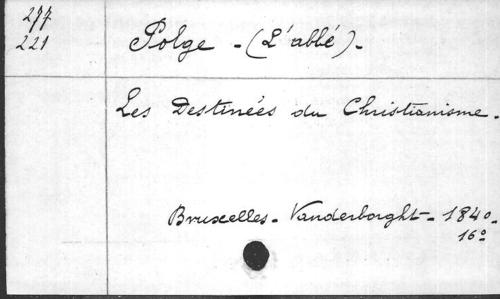 277
221
Polge - (L'abbé) -
Les Destinées du Christianisme.
Bruxelles - Vanderborght - 1840.
16º